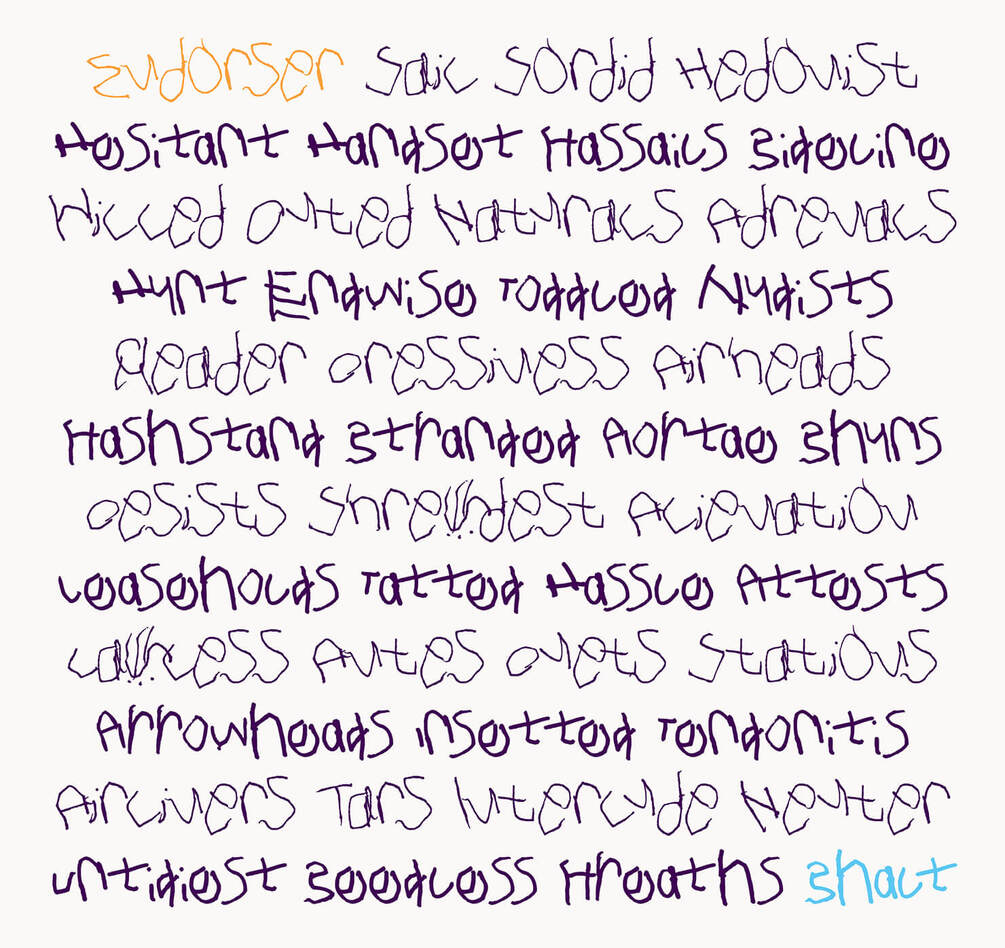 Endorser Sail Sordid Hedonist
Hesitant Handset Wassails Sideline
Willed Outed Naturals Adrenals
Hunt Endwise Toddled Nudists
Reader Dressiness Airheads
Washstand Stranded Aortae Shuns
Desists Shrewdest Alienation
Leaseholds Tatted Hassle Attests
Lawless Antes Duets Stations
Arrowheads Insetted Tendonitis
Airliners Tars Interlude Neuter
Untidiest Seedless Wreaths Shalt